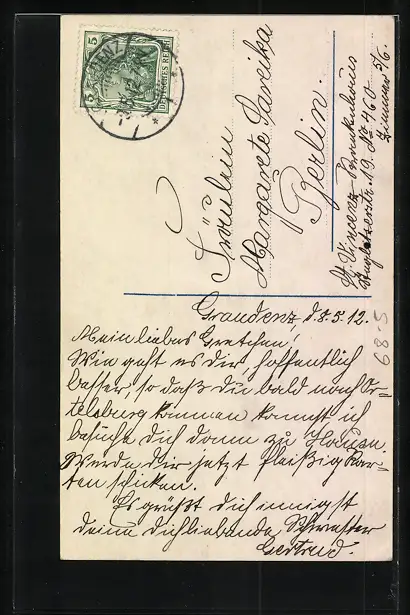 5
5
DEUTSCHES REICH
Fräulein
Margarete Sareika
Berlin.
St. Vincenz-Krankenhaus
19. No 460
Zimmer 5/6.
Graudenz, d. 8.5.12.
Mein liebes Gretchen!
Wie geht es dir, hoffentlich
besser, so daß du bald nach Or-
telsburg kommen kannst ich
besuche dich dann zu Hause.
Werde dir jetzt fleißig Kar-
ten schicken.
Es grüßt dich innigst
deine dichliebende Schwester
Gertrud.
68-5